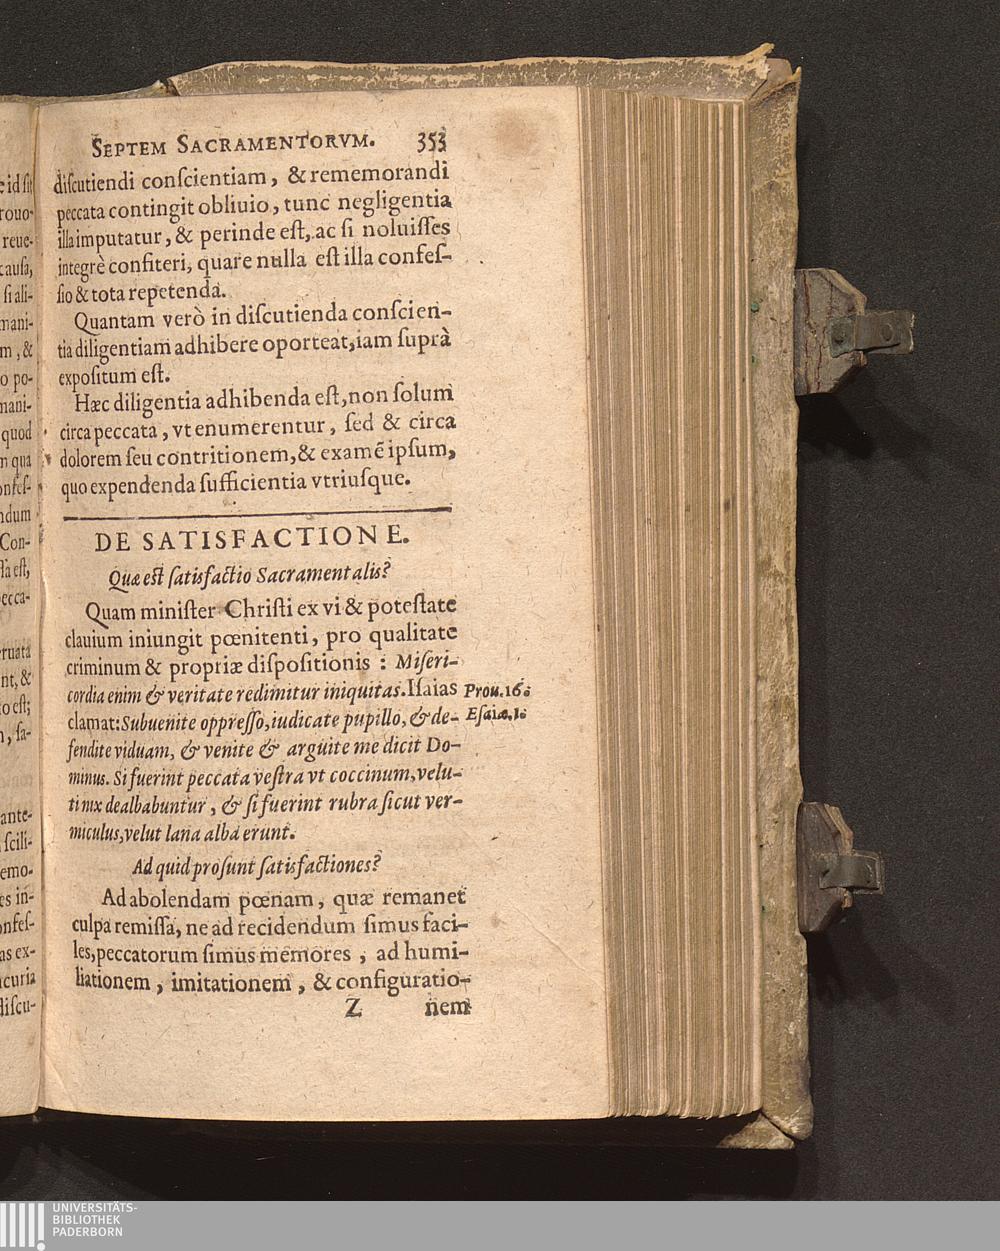 SEPTEM SACRAMENTORVM. 353
diſcutiendi conſcientiam, & rememorandi
peccata contingit obliuio, tunc negligentia
illa imputatur, & perinde eſt, ac ſi noluiſſes
integrè confiteri, quare nulla eſt illa confeſ-
ſio & tota repetenda.
Quantam verò in diſcutienda conſcien-
tia diligentiam adhibere oporteat, iam ſuprà
expoſitum eſt.
Hæc diligentia adhibenda eſt, non ſolum
circa peccata, vt enumerentur, ſed & circa
dolorem ſeu contritionem, & examẽ ipſum,
quo expendenda ſufficientia vtriuſque.
DE SATISFACTIONE.
Quæ eſt ſatisfactio Sacramentalis?
Quam miniſter Chriſti ex vi & poteſtate
clauium iniungit pœnitenti, pro qualitate
criminum & propriæ diſpoſitionis : Miſeri-
cordia enim & veritate redimitur iniquitas. Iſaias Prou. 16.
clamat: Subuenite oppreſſo, iudicate pupillo, & de- Eſaiæ. 1.
fendite viduam, & venite & arguite me dicit Do-
minus. Si fuerint peccata veſtra vt coccinum, velu-
ti nix dealbabuntur, & ſi fuerint rubra ſicut ver-
miculus, velut lana alba erunt.
Ad quid proſunt ſatisfactiones?
Ad abolendam pœnam, quæ remanet
culpa remiſſa, ne ad recidendum ſimus faci-
les, peccatorum ſimus memores, ad humi-
liationem, imitationem, & configuratio-
Z nem
UNIVERSITÄTS-
BIBLIOTHEK
PADERBORN